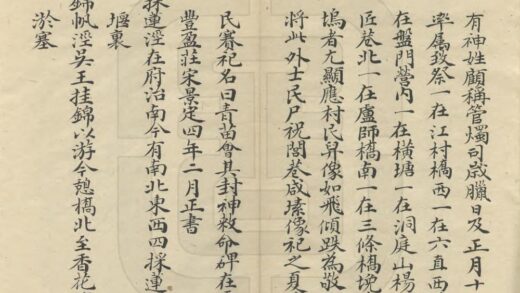 有神姓顧稱管燭司歲臘日及正月十
率屬致祭一在江村橋西一在六直西
在盤門營内一在橫塘一在洞庭山楊
匠巷北一在盧師橋南一在三條橋堍
塢者尤顯應村民舁像如飛傾跌為敬
將此外士民尸祝閭巷咸塐像祀之夏
民賽祀名曰青苗會其封神敕命碑在
豐盈莊宋景定四年二月正書
採蓮涇在府治南今有南北東西四採蓮
堰裏
錦帆涇吳王挂錦以游今憩橋北至香花
淤塞